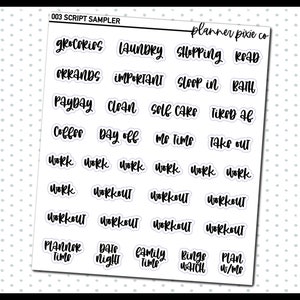 003 SCRIPT SAMPLER
planner pixie co.
groceries LAUNDRY SHOPPING READ
ERRANDS important SLEEP IN BATH
PAYDAY CLEAN SELF CARE TIRED AF
COFFEE DAY OFF ME TIME TAKE OUT
WORK WORK WORK WORK WORK WORK
WORK WORKOUT WORKOUT WORKOUT
WORKOUT WORKOUT WORKOUT WORKOUT
PLANNER TIME DATE NIGHT FAMILY TIME BINGE WATCH PLAN W/ME